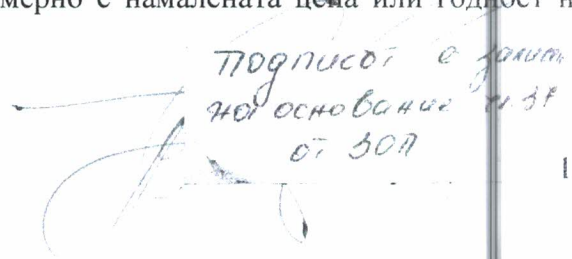 мерно с намалената цена или годност н
Подписът е залич
на основание
от ЗОП